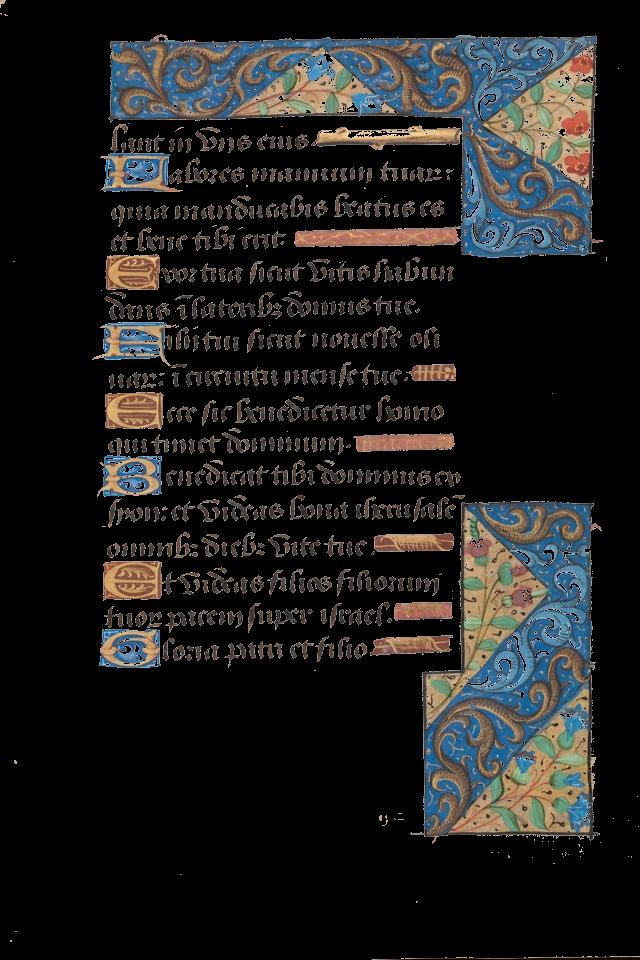 lant in viis eius.
Labores manuum tuaꝝ:
quia manducabis beatus es
et bene tibi erit.
Uxor tua sicut vitis habun
dans ī lateribꝫ domus tue.
Filij tui sicut nouelle oli
uaꝝ: ī circuitu mense tue.
Ecce sic benedicetur homo
qui timet dominum.
Benedicat tibi dominus ex
syon: et videas bona iherusalē
omnibꝫ diebꝫ vite tue.
Et videas filios filiorum
tuoꝝ pacem super israel.
Gloria patri et filio.